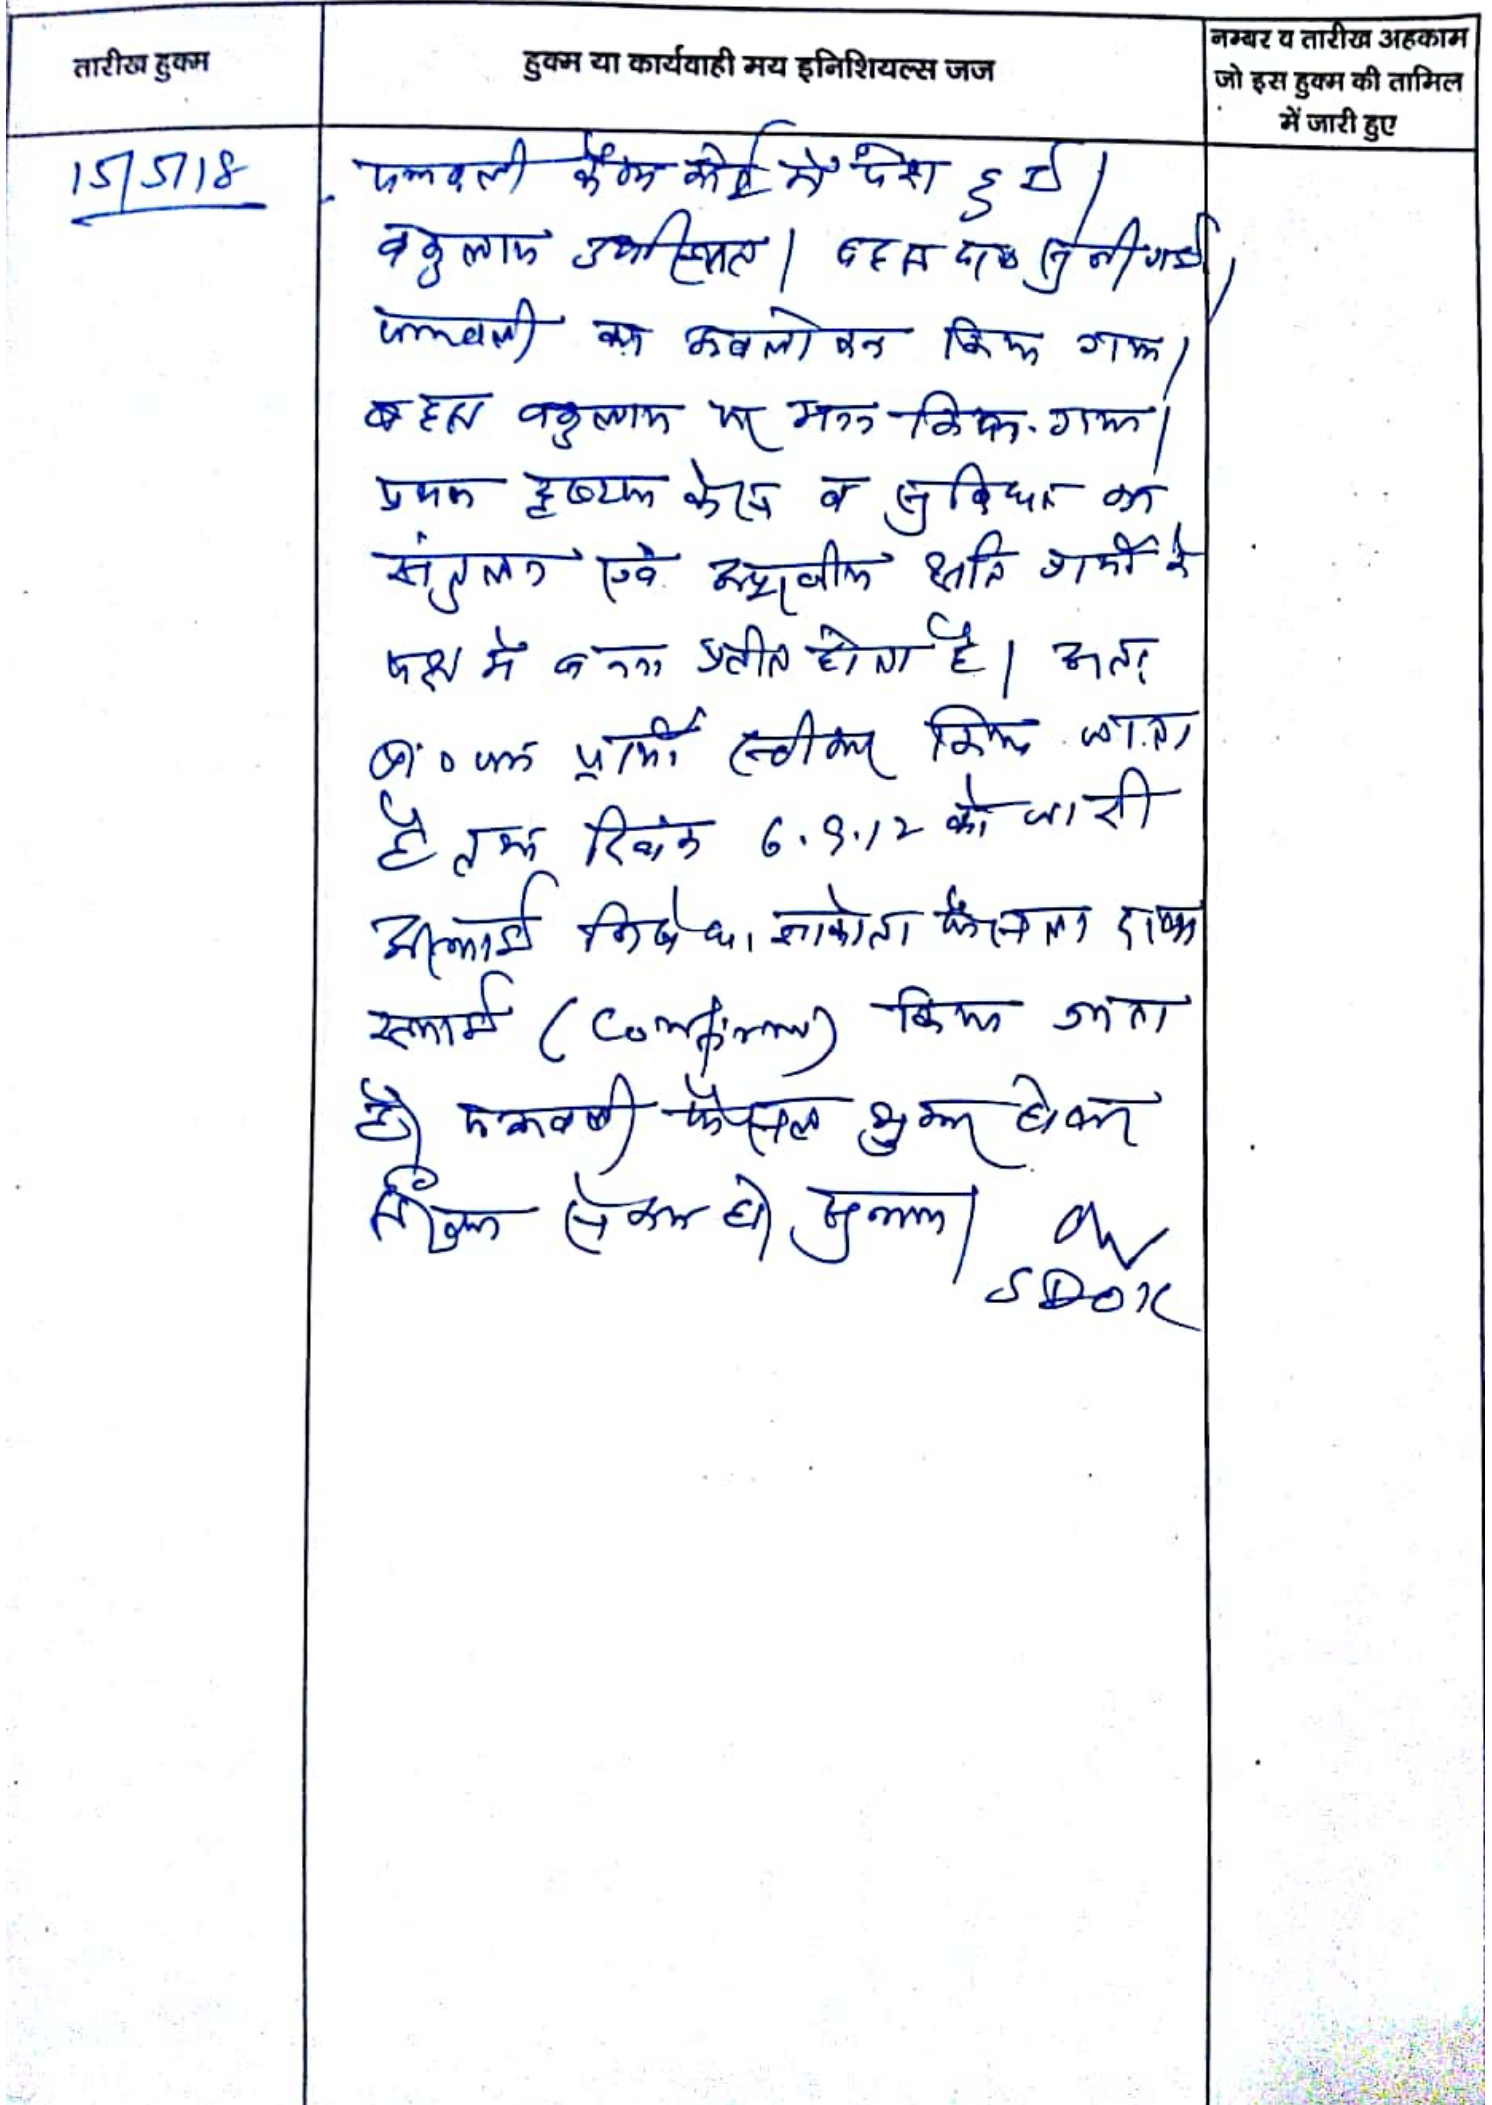 तारीख हुक्म
हुक्म या कार्यवाही मय इनिशियल्स जज
नम्बर व तारीख अहकाम
जो इस हुक्म की तामिल
में जारी हुए
15/5/18
पत्रावली कैम्प कोर्ट में पेश हुई।
वकुलाय उपस्थित। बहस सुनी गई।
पत्रावली का अवलोकन किया गया।
बहस वकुलाय पर मनन किया गया।
प्रथम दृष्टया केस व सुविधा का
संतुलन एवं अपूरणीय क्षति प्रार्थी के
पक्ष में बनना प्रतीत होता है। अतः
प्रा० पत्र प्रार्थी स्वीकार किया जाता
है तथा दिनांक 6.9.12 को जारी
अस्थाई निषेधाज्ञा फैसला दावा
स्थाई (Confirm) किया जाता
है। पत्रावली फैसल शुमार होकर
हो। सुनाया।
SDO